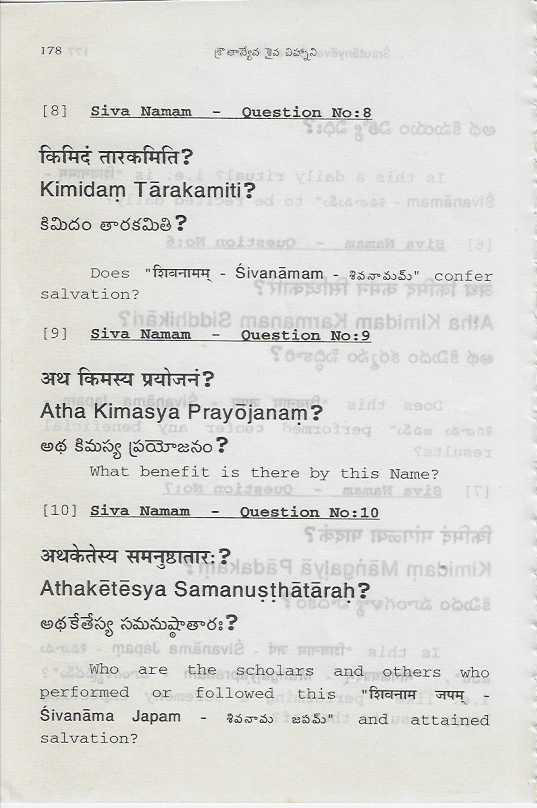 178 శ్రౌతాన్యేవ శైవ చిహ్నాని
[8] Siva Namam - Question No:8
किमिदं तारकमिति?
Kimidaṃ Tārakamiti?
కిమిదం తారకమితి?
Does "शिवनामम् - Śivanāmam - శివనామమ్" confer
salvation?
[9] Siva Namam - Question No:9
अथ किमस्य प्रयोजनं?
Atha Kimasya Prayōjanaṃ?
అథ కిమస్య ప్రయోజనం?
What benefit is there by this Name?
[10] Siva Namam - Question No:10
अथकेतेस्य समनुष्ठातारः?
Athakētēsya Samanuṣṭhātāraḥ?
అథకేతేస్య సమనుష్ఠాతారః?
Who are the scholars and others who
performed or followed this "शिवनाम जपम् -
Śivanāma Japam - శివనామ జపమ్" and attained
salvation?